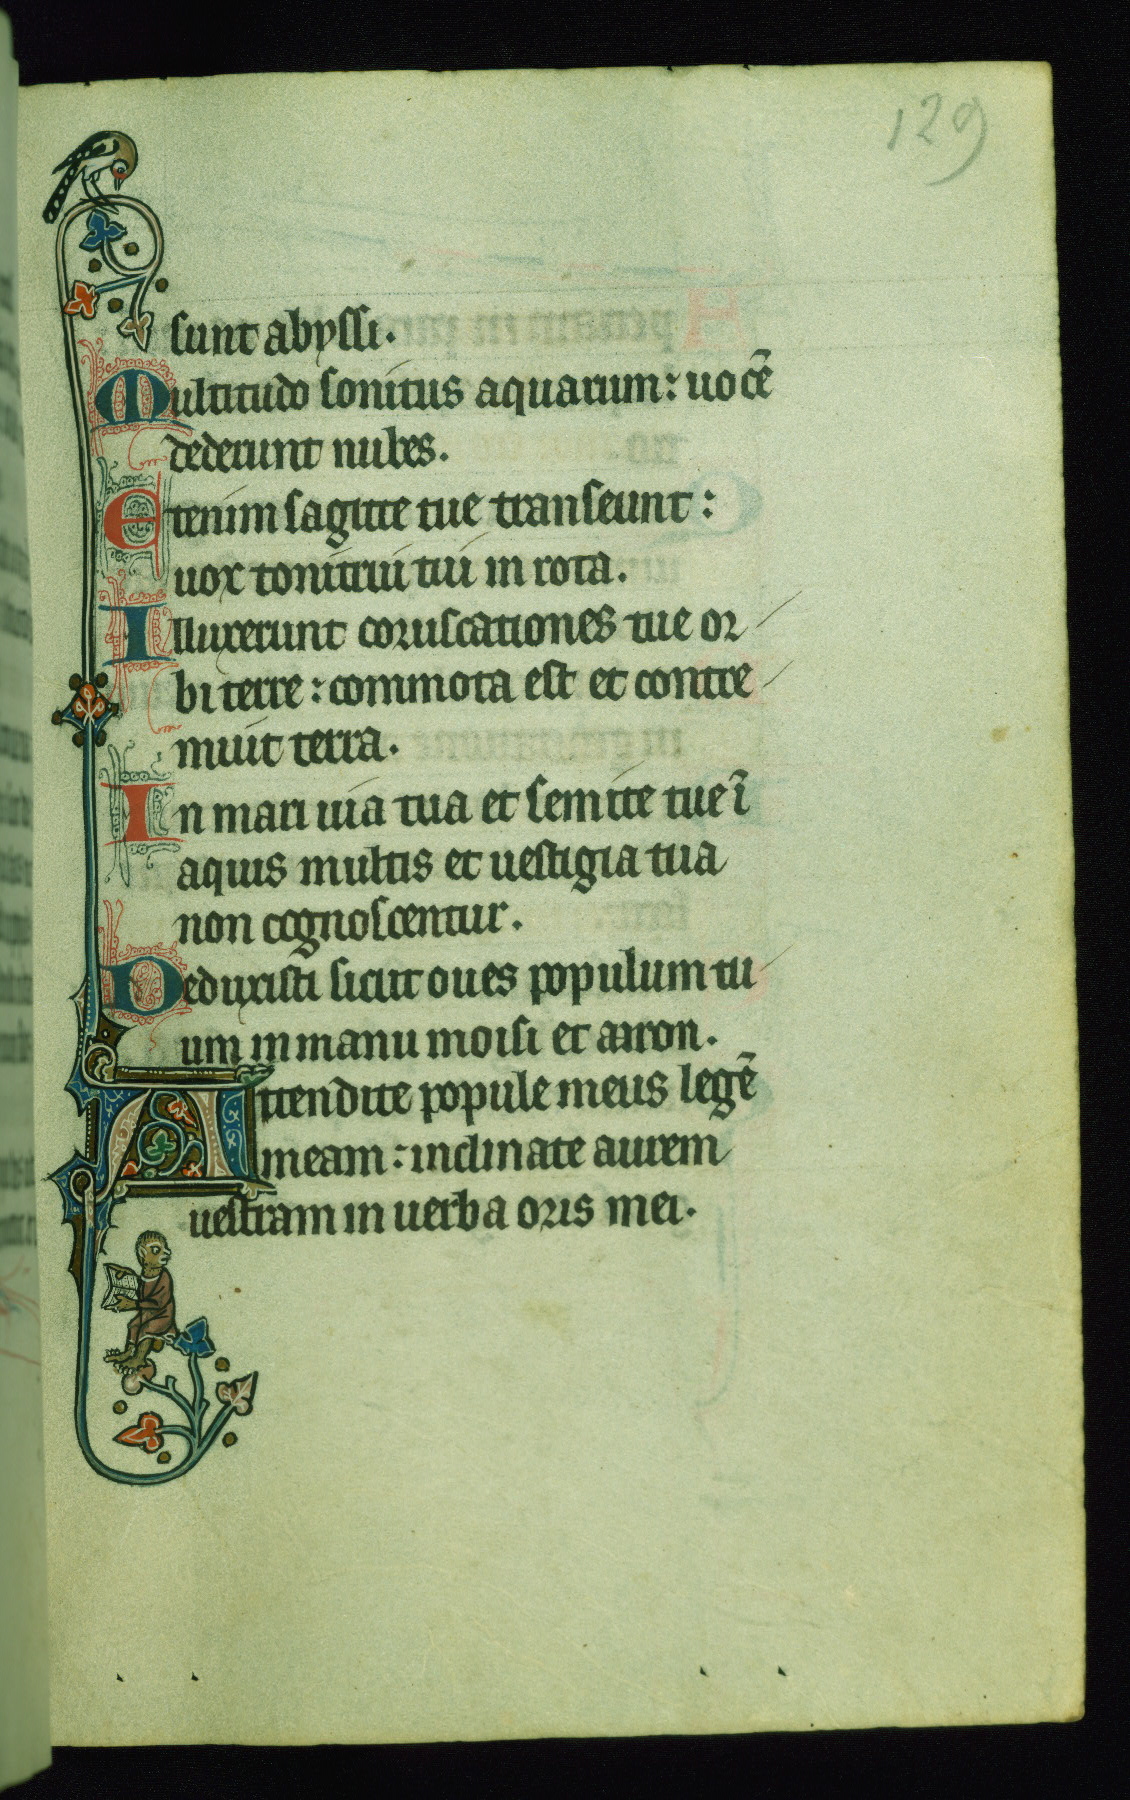 129
sunt abyssi.
Multitudo sonitus aquarum: uocē
dederunt nubes.
Etenim sagitte tue transeunt:
uox tonitrui tui in rota.
Illuxerunt coruscationes tue or
bi terre: commota est et contre
muit terra.
In mari uia tua et semite tue ī
aquis multis et uestigia tua
non cognoscentur.
Deduxisti sicut oues populum tu
um in manu moisi et aaron.
Attendite popule meus legē
meam: inclinate aurem
uestram in uerba oris mei.